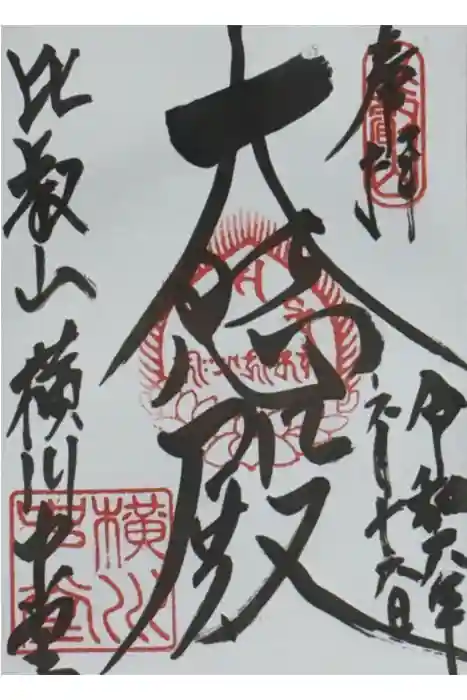 奉拝
令和六年
十六日
大悲殿
比叡山 横川中堂
横川中堂